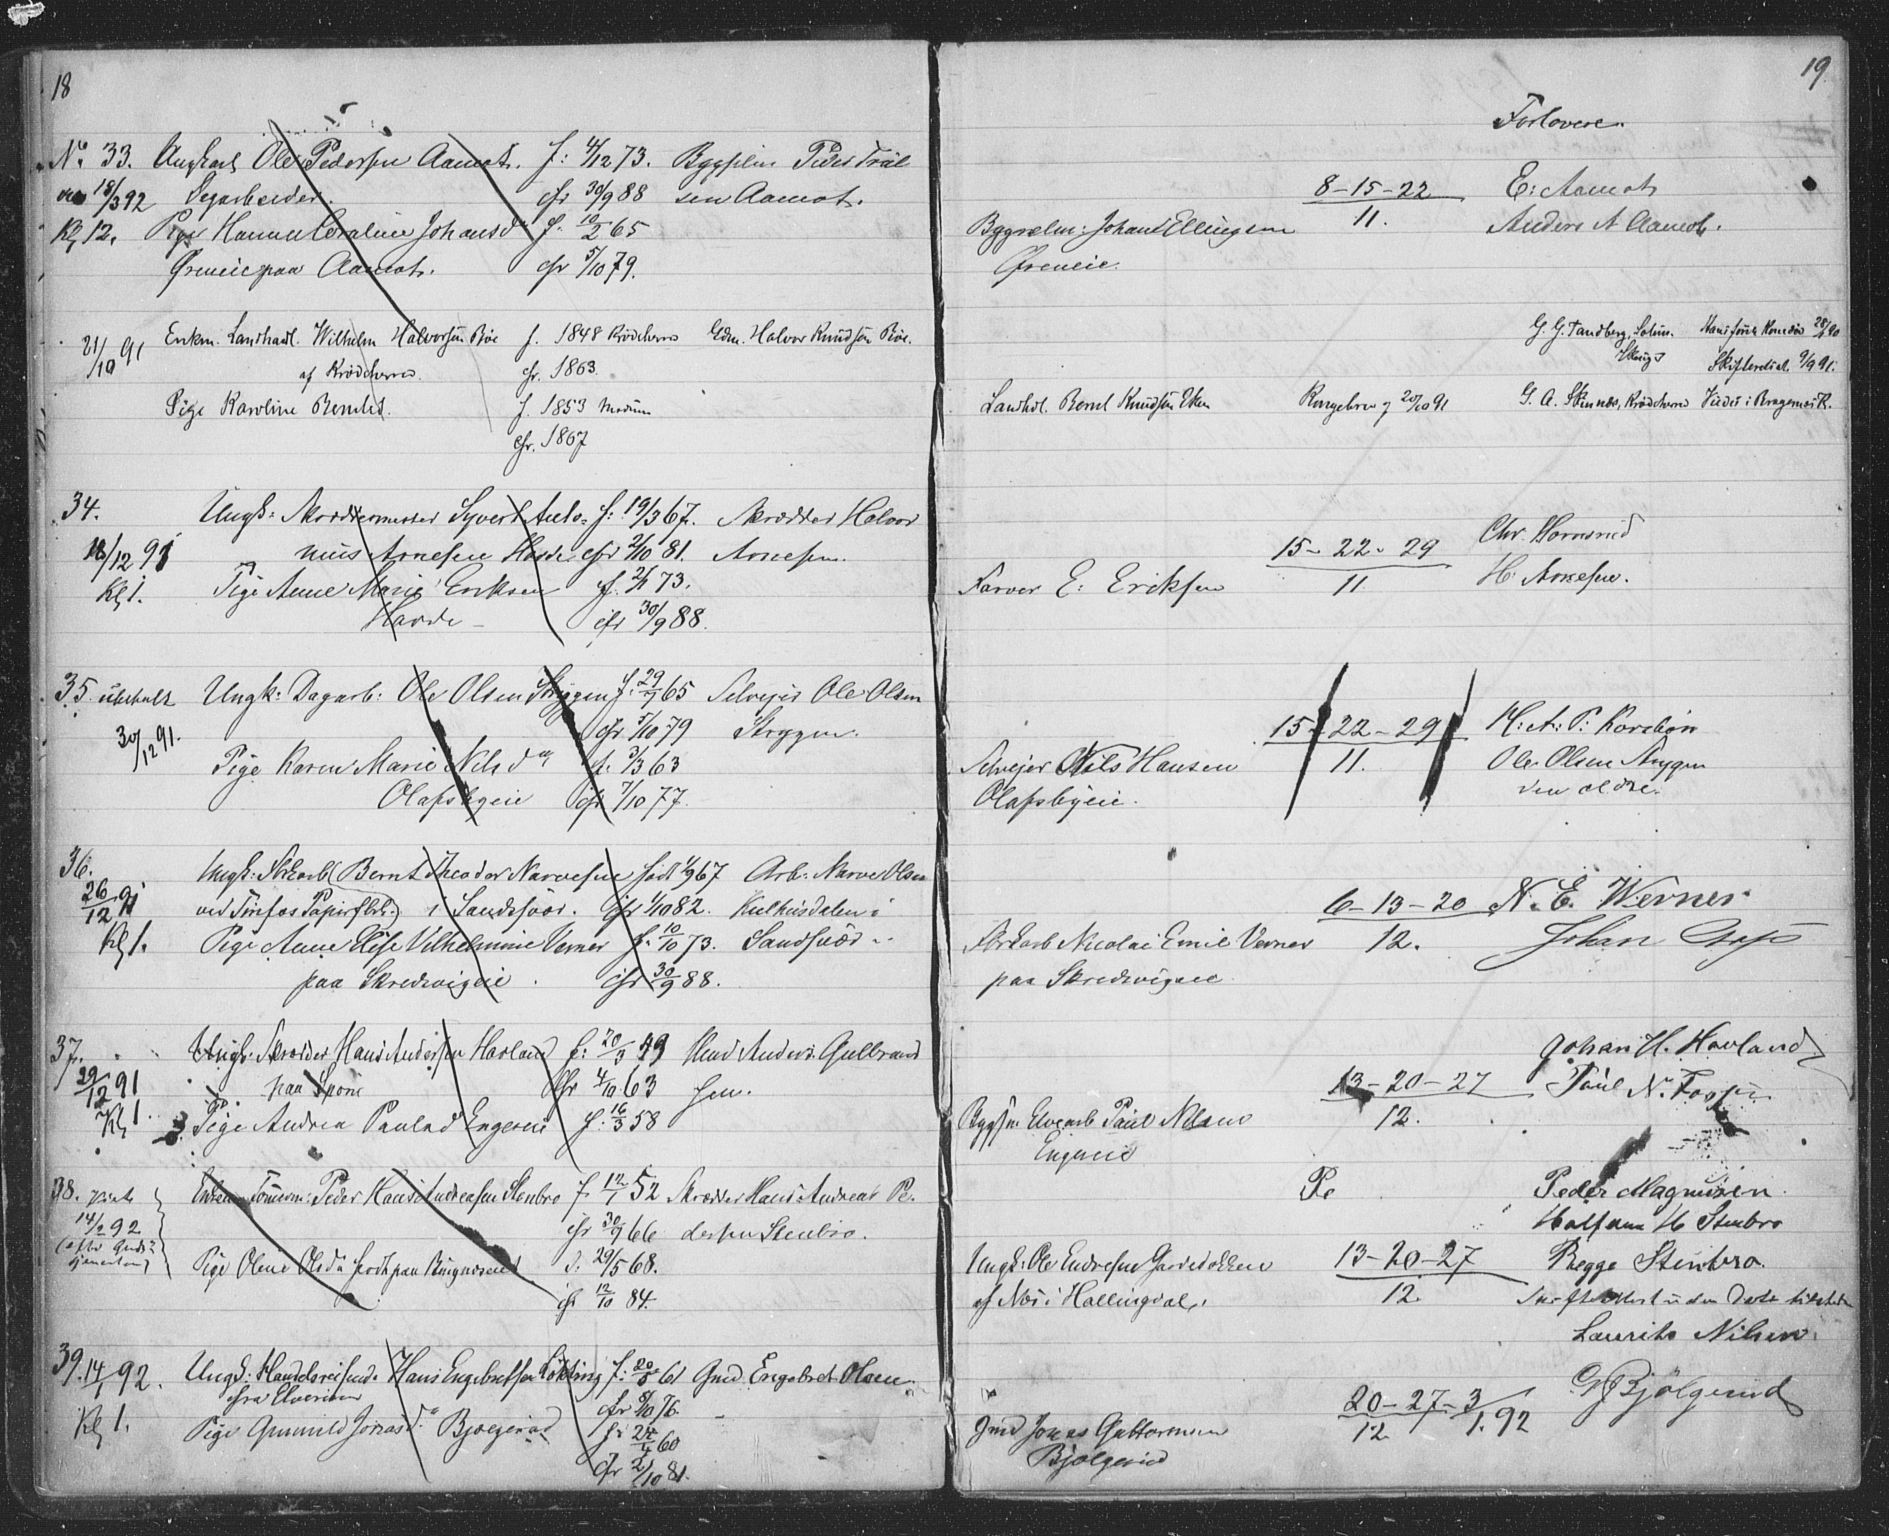 18
No 33. Ungkarl Ole Pedersen Aamot. f: 4/12 73. Byggslm Peder Tral
18/3 92 Dagarbeider. cfr 30/9 88 sen Aamot.
Kl 12. Pige Hanna Caroline Johansdr f. 10/2 65
Øreneie paa Aamot. cfr 5/10 79.
21/10 91 Enkm. Landhandl. Wilhelm Halvorsen Bøe f. 1848 Krødsherred Gdm. Halvor Knudsen Bøe.
af Krødsherred. cfr. 1863
Pige Karoline Berntsd. f. 1853 Modum
cfr. 1867
34. Ungk: Skræddermester Syvert Anto= f: 19/3 67. Skrædder Halvor
18/12 91 nius Arnesen Hovde cfr 2/10 81. Arnesen.
Kl 1. Pige Anne Marie Eriksen f. 2/1 73.
Hovde cfr 30/9 88.
35. udebult Ungk: Dagarb: Ole Olsen Stryggen f. 29/7 65 Selveier Ole Olsen
30/12 91. cfr 5/10 79 Stryggen.
Pige Karen Marie Nilsdr f. 3/3 63
Olafsbyeie cfr 7/10 77.
36. Ungk: Fbrkarb (Bernt Theodor Narvesen født 1/9 67 Arb. Narve Olsen
26/12 91 ved Tinfos Papirfbrk.) i Sandsvær. cfr 1/10 82. Kulhusdalen i
Kl 1. Pige Anne Elise Vilhelmine Verner f. 10/10 73. Sandsvær.
paa Skredsvigeie. cfr 30/9 88.
37. Ungk. Skrædder Hans Andersen Hovland f: 20/3 49 Huusm. Anders Gulbrand
29/12 91 paa Spone cfr 4/10 63 sen.
Kl 1. Pige Andrea Paulsd Engereie f. 16/3 58
38. Enkem Tømmerm: Peder Hans Andreasen Stenbro f 12/1 52 Skrædder Hans Andreas Pe.
14/2 92 cfr 30/9 66 dersen Stenbro.
(efter Guds=
tjenesten) Pige Oline Olsdr født paa Ringnæseie f. 29/5 68.
cfr 12/10 84.
39. 14/1 92. Ungk: Handelsreisende Hans Engebretsen Løkting f: 20/5 61 Gmd Engebret Olsen
fra Elverum cfr 8/10 76.
Kl 1. Pige Gunnild Jonasdr Bjølgerud f: 22/4 60
cfr 2/10 81.
19
Forlovere.
8-15-22 E: Aamot
11. Anders A Aamot.
Byggselm: Johan Ellingsen
Øreneie.
G. G. Tandberg, Hans Foss Komnes 28/9 90
Skifteretsat. 9/9 91.
Landhdl. Bernt Knudsen Eken Ringebro 7 20/10 91 G. A. Skinnes, Krødsherred Viede i Bragernes K.
15-22-29 Chr Hornsrud
Farver E: Eriksen 11. H. Arnesen.
15-22-29 H: A: P: Korsbøn
Selveier Nils Hansen 11. Ole Olsen Stryggen
Olafsbyeie. den ældre.
6-13-20 N. E. Werner
Fbrkarb Nicolai Emil Verner 12. Johan
paa Skredsvigeie
Johan H. Hovland
13-20-27 Paul N. Fossen
Byggsm Elvearb Paul Nilsen 12.
Engereie
Pe Peder Magnusen
Halfdan H Stenbro
Ungk. Ole Endresen Gardebakken 13-20-27 Begge Stenbro.
af Næs i Hallingdal. 12. Skifteattest
Laurits Nilsen.
20-27-3 G Bjølgerud
12 1. 92
Gmd Jonas Guttormsen
Bjølgerud